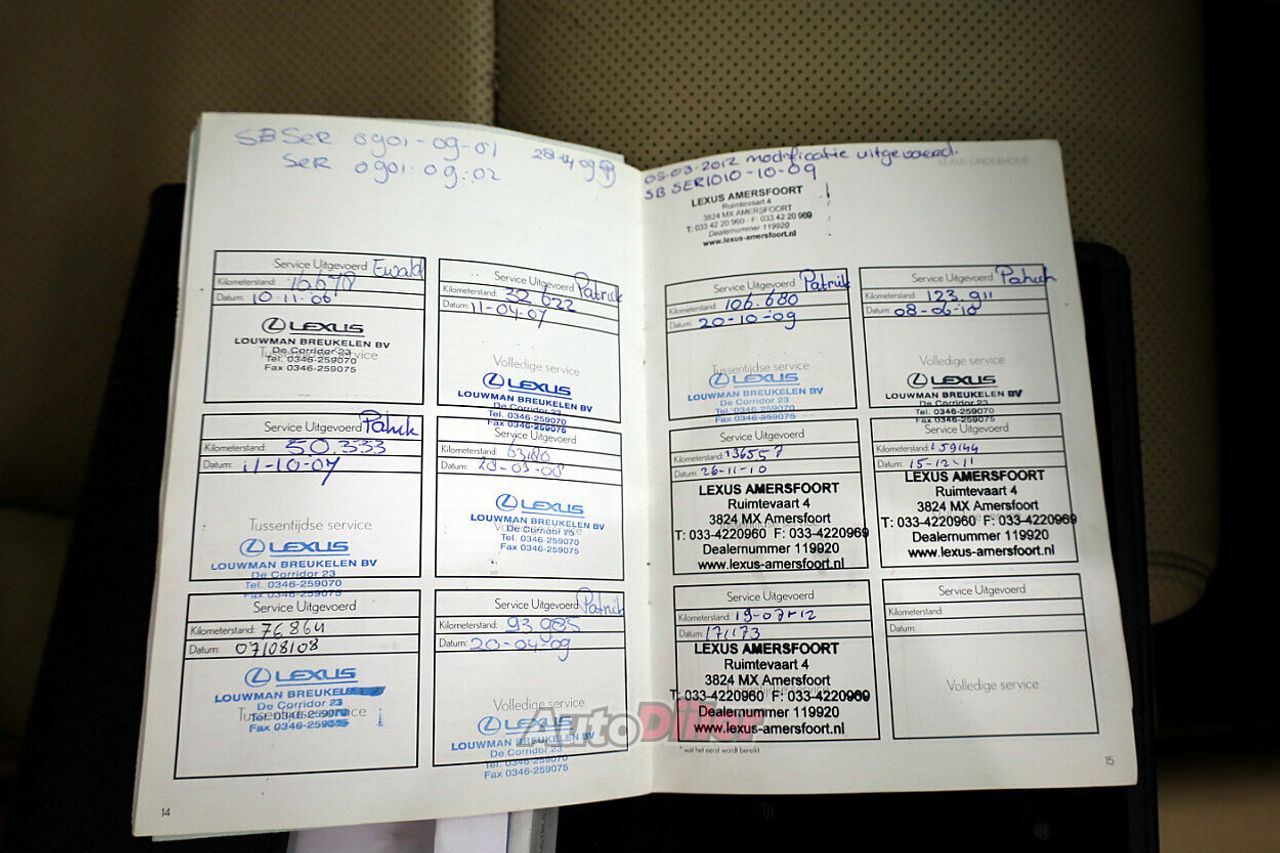 SBSER 0901-09-01
SER 0901-09-02
28-04-09
Service Uitgevoerd Ewald
Kilometerstand: 16.678
Datum: 10-11-06
LEXUS
LOUWMAN BREUKELEN BV
De Corridor 23
Tussentijdse service
Tel. 0346-259070
Fax 0346-259075
Service Uitgevoerd Patrick
Kilometerstand: 32.622
Datum: 11-04-07
Volledige service
LEXUS
LOUWMAN BREUKELEN BV
De Corridor 23
Tel. 0346-259070
Fax 0346-259075
Service Uitgevoerd Patrick
Kilometerstand: 50.333
Datum: 11-10-07
Tussentijdse service
LEXUS
LOUWMAN BREUKELEN BV
De Corridor 23
Tel. 0346-259070
Fax 0346-259075
Service Uitgevoerd
Kilometerstand:
Datum: 28-03-08
LEXUS
LOUWMAN BREUKELEN BV
Volledige service
De Corridor 23
Tel. 0346-259070
Fax 0346-259075
Service Uitgevoerd
Kilometerstand: 76864
Datum: 07/08/08
LEXUS
LOUWMAN BREUKELEN
De Corridor 23
Tussentijdse service
Tel. 0346-259070
Fax 0346-259075
Service Uitgevoerd Patrick
Kilometerstand: 93.985
Datum: 20-04-09
Volledige service
LEXUS
LOUWMAN BREUKELEN BV
De Corridor 23
Tel. 0346-259070
Fax 0346-259075
14
LEXUS ONDERHOUD
05-03-2012 modificatie uitgevoerd.
SB SER1010-10-09
LEXUS AMERSFOORT
Ruimtevaart 4
3824 MX AMERSFOORT
T: 033 42 20 960 - F: 033 42 20 969
Dealernummer 119920
www.lexus-amersfoort.nl
Service Uitgevoerd Patrick
Kilometerstand: 106.680
Datum: 20-10-09
Tussentijdse service
LEXUS
LOUWMAN BREUKELEN BV
De Corridor 23
Tel. 0346-259070
Fax 0346-259075
Service Uitgevoerd Patrick
Kilometerstand: 123.911
Datum: 08-06-10
Volledige service
LEXUS
LOUWMAN BREUKELEN BV
De Corridor 23
Tel. 0346-259070
Fax 0346-259075
Service Uitgevoerd
Kilometerstand: 136557
Datum: 26-11-10
LEXUS AMERSFOORT
Ruimtevaart 4
3824 MX Amersfoort
T: 033-4220960 F: 033-4220969
Dealernummer 119920
www.lexus-amersfoort.nl
Service Uitgevoerd
Kilometerstand: 159144
Datum: 15-12-11
LEXUS AMERSFOORT
Ruimtevaart 4
3824 MX Amersfoort
T: 033-4220960 F: 033-4220969
Dealernummer 119920
www.lexus-amersfoort.nl
Service Uitgevoerd
Kilometerstand: 19-07-12
Datum: 171173
LEXUS AMERSFOORT
Ruimtevaart 4
3824 MX Amersfoort
T: 033-4220960 F: 033-4220969
Dealernummer 119920
www.lexus-amersfoort.nl
* wat het eerst wordt bereikt
Service Uitgevoerd
Kilometerstand:
Datum:
Volledige service
15
AutoDiler